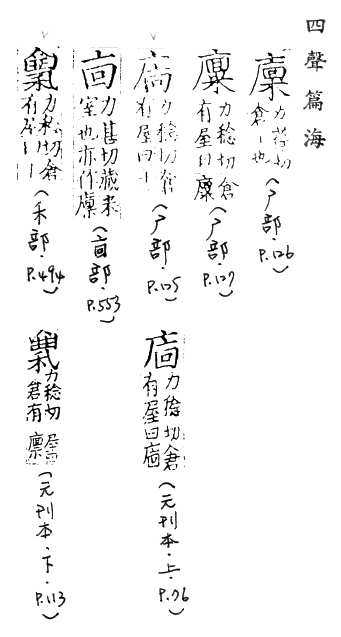 四聲篇海
廩 力荏切倉ㄧ也(广部·P.126)
廪 力稔切倉有屋曰廪(广部·P.127)
力稔切倉有屋曰ㄧ(广部·P.125)
㐭 力甚切藏米室也亦作廩(㐭部·P.553)
力稔切倉有屋ㄧㄧ(禾部·P.494)
力稔切倉有屋曰(元刊本·上·P.76)
力稔切倉有屋曰廪(元刊本·下·P.113)